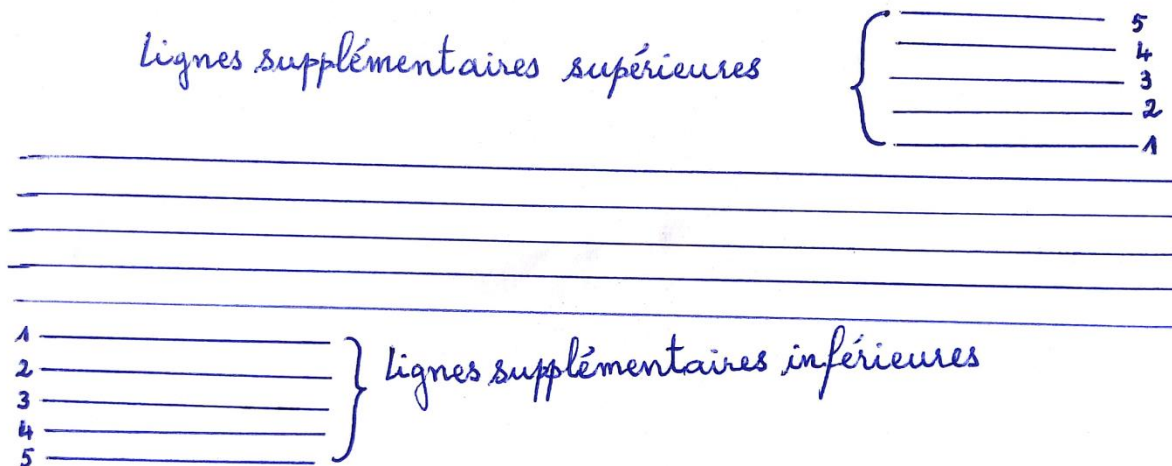 Lignes supplémentaires supérieures
5
4
3
2
1
1
2
3
4
5
Lignes supplémentaires inférieures